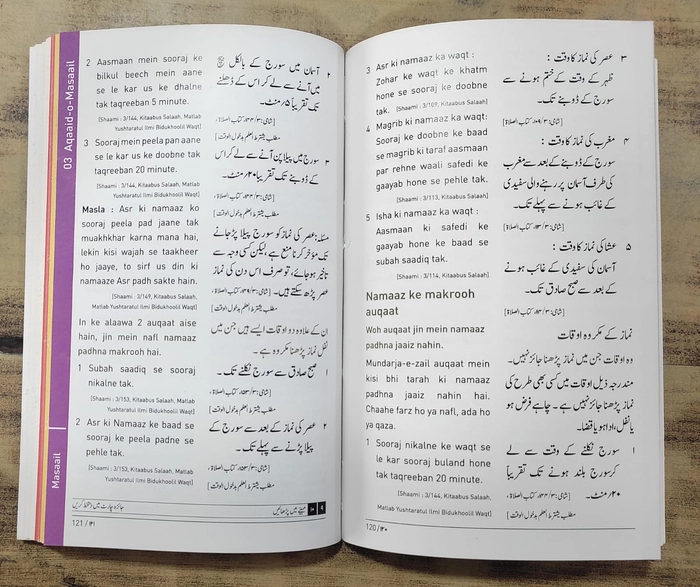 3 Asr ki namaaz ka waqt :
Zohar ke waqt ke khatm
hone se sooraj ke doobne
tak. [Shaami : 3/109, Kitaabus Salaah]
4 Magrib ki namaaz ka waqt:
Sooraj ke doobne ke baad
se magrib ki taraf aasmaan
par rehne waali safedi ke
gaayab hone se pehle tak.
[Shaami : 3/113, Kitaabus Salaah]
5 Isha ki namaaz ka waqt :
Aasmaan ki safedi ke
gaayab hone ke baad se
subah saadiq tak.
[Shaami : 3/114, Kitaabus Salaah]
Namaaz ke makrooh
auqaat
Woh auqaat jin mein namaaz
padhna jaaiz nahin.
Mundarja-e-zail auqaat mein
kisi bhi tarah ki namaaz
padhna jaaiz nahin hai.
Chaahe farz ho ya nafl, ada ho
ya qaza.
1 Sooraj nikalne ke waqt se
le kar sooraj buland hone
tak taqreeban 20 minute.
[Shaami : 3/144, Kitaabus Salaah,
Matlab Yushtaratul Ilmi Bidukhoolil Waqt]
۳ عصر کی نماز کا وقت :
ظہر کے وقت کے ختم ہونے سے
سورج کے ڈوبنے تک۔
۴ مغرب کی نماز کا وقت :
سورج کے ڈوبنے کے بعد سے مغرب
کی طرف آسمان پر رہنے والی سفیدی
کے غائب ہونے سے پہلے تک۔
۵ عشا کی نماز کا وقت :
آسمان کی سفیدی کے غائب ہونے
کے بعد سے صبح صادق تک۔
نماز کے مکروہ اوقات
وہ اوقات جن میں نماز پڑھنا جائز نہیں۔
مندرجہ ذیل اوقات میں کسی بھی طرح کی
نماز پڑھنا جائز نہیں ہے۔ چاہے فرض ہو
یا نفل، ادا ہو یا قضا۔
۱ سورج نکلنے کے وقت سے لے
کر سورج بلند ہونے تک تقریباً
۲۰ منٹ۔
120 / ۱۲۰
03 Aqaaid-o-Masaail
2 Aasmaan mein sooraj ke
bilkul beech mein aane
se le kar us ke dhalne
tak taqreeban 5 minute.
[Shaami : 3/144, Kitaabus Salaah, Matlab
Yushtaratul Ilmi Bidukhoolil Waqt]
3 Sooraj mein peela pan aane
se le kar us ke doobne tak
taqreeban 20 minute.
[Shaami : 3/144, Kitaabus Salaah, Matlab
Yushtaratul Ilmi Bidukhoolil Waqt]
Masla : Asr ki namaaz ko
sooraj peela pad jaane tak
muakhhar karna mana hai,
lekin kisi wajah se taakheer
ho jaaye, to sirf us din ki
namaaze Asr padh sakte hain.
[Shaami : 3/149, Kitaabus Salaah,
Matlab Yushtaratul Ilmi Bidukhoolil Waqt]
In ke alaawa 2 auqaat aise
hain, jin mein nafl namaaz
padhna makrooh hai.
1 Subah saadiq se sooraj
nikalne tak.
[Shaami : 3/153, Kitaabus Salaah, Matlab
Yushtaratul Ilmi Bidukhoolil Waqt]
2 Asr ki Namaaz ke baad se
sooraj ke peela padne se
pehle tak.
[Shaami : 3/153, Kitaabus Salaah, Matlab
Yushtaratul Ilmi Bidukhoolil Waqt]
۲ آسمان میں سورج کے بالکل بیچ
میں آنے سے لے کر اس کے ڈھلنے
تک تقریباً ۵ منٹ۔
۳ سورج میں پیلا پن آنے سے لے کر اس
کے ڈوبنے تک تقریباً ۲۰ منٹ۔
مسئلہ: عصر کی نماز کو سورج پیلا پڑ جانے
تک مؤخر کرنا منع ہے، لیکن کسی وجہ سے
تاخیر ہو جائے، تو صرف اس دن کی نماز
عصر پڑھ سکتے ہیں۔
ان کے علاوہ دو اوقات ایسے ہیں جن میں
نفل نماز پڑھنا مکروہ ہے۔
۱ صبح صادق سے سورج نکلنے تک۔
۲ عصر کی نماز کے بعد سے سورج کے
پیلا پڑنے سے پہلے تک۔
Masaail
121 / ۱۲۱